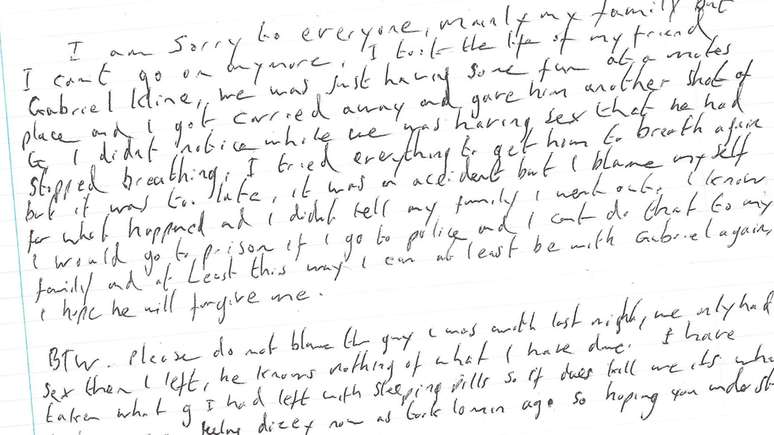 I am sorry to everyone, mainly my family but
I cant go on anymore. I took the life of my friend
Gabriel Kline, we was just having some fun at a mates
place and I got carried away and gave him another shot of
G I didnt notice while we was having sex that he had
stopped breathing. I tried everything to get him to breath again
but it was to late, it was a accident but I blame myself
for what happened and I didnt tell my family I went out. I know
I would go to prison if I go to police and I cant do that to my
family and at least this way I can at least be with Gabriel again,
I hope he will forgive me.
BTW. Please do not blame the guy I was with last night, we only had
sex then I left, he knows nothing of what I have done. I have
taken what g I had left with sleeping pills so if it does kill me its what
feeling dizzy now as took 10 min ago so hoping you underst